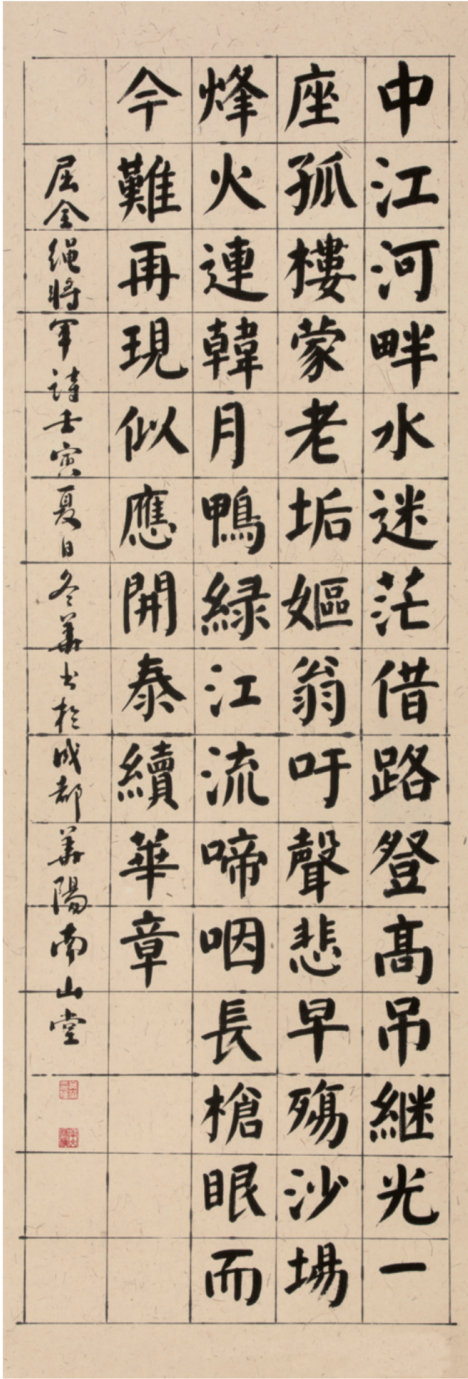 中江河畔水迷茫借路登高吊継光一
座孤樓蒙老垢嫗翁吁聲悲早殤沙場
烽火連韓月鴨緑江流啼咽長槍眼而
今難再現似應開泰續華章
屈全绳將軍詩壬寅夏日冬華书於成都華陽南山堂